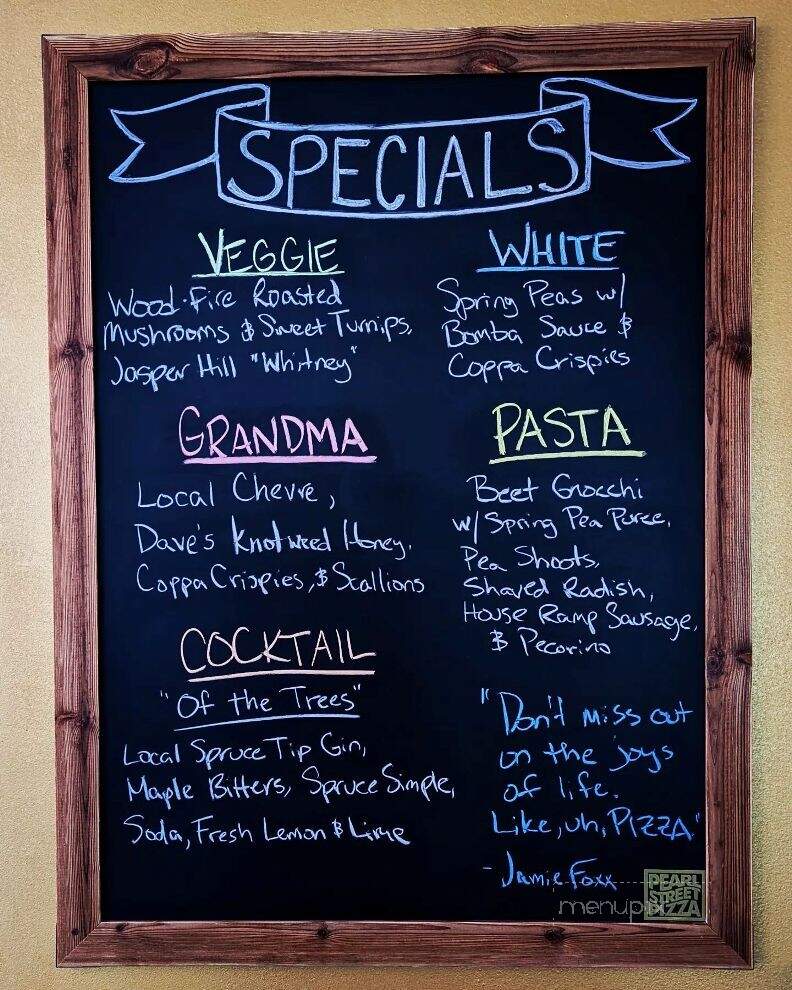 SPECIALS
VEGGIE
Wood-Fire Roasted
Mushrooms & Sweet Turnips,
Jasper Hill "Whitney"
WHITE
Spring Peas w/
Bomba Sauce &
Coppa Crispies
GRANDMA
Local Chevre,
Dave's Knotweed Honey,
Coppa Crispies, & Scallions
PASTA
Beet Gnocchi
w/ Spring Pea Puree,
Pea Shoots,
Shaved Radish,
House Ramp Sausage,
& Pecorino
COCKTAIL
"Of the Trees"
Local Spruce Tip Gin,
Maple Bitters, Spruce Simple,
Soda, Fresh Lemon & Lime
"Don't miss out
on the joys
of life.
Like, uh, PIZZA."
- Jamie Foxx
PEARL
STREET
PIZZA
menupix